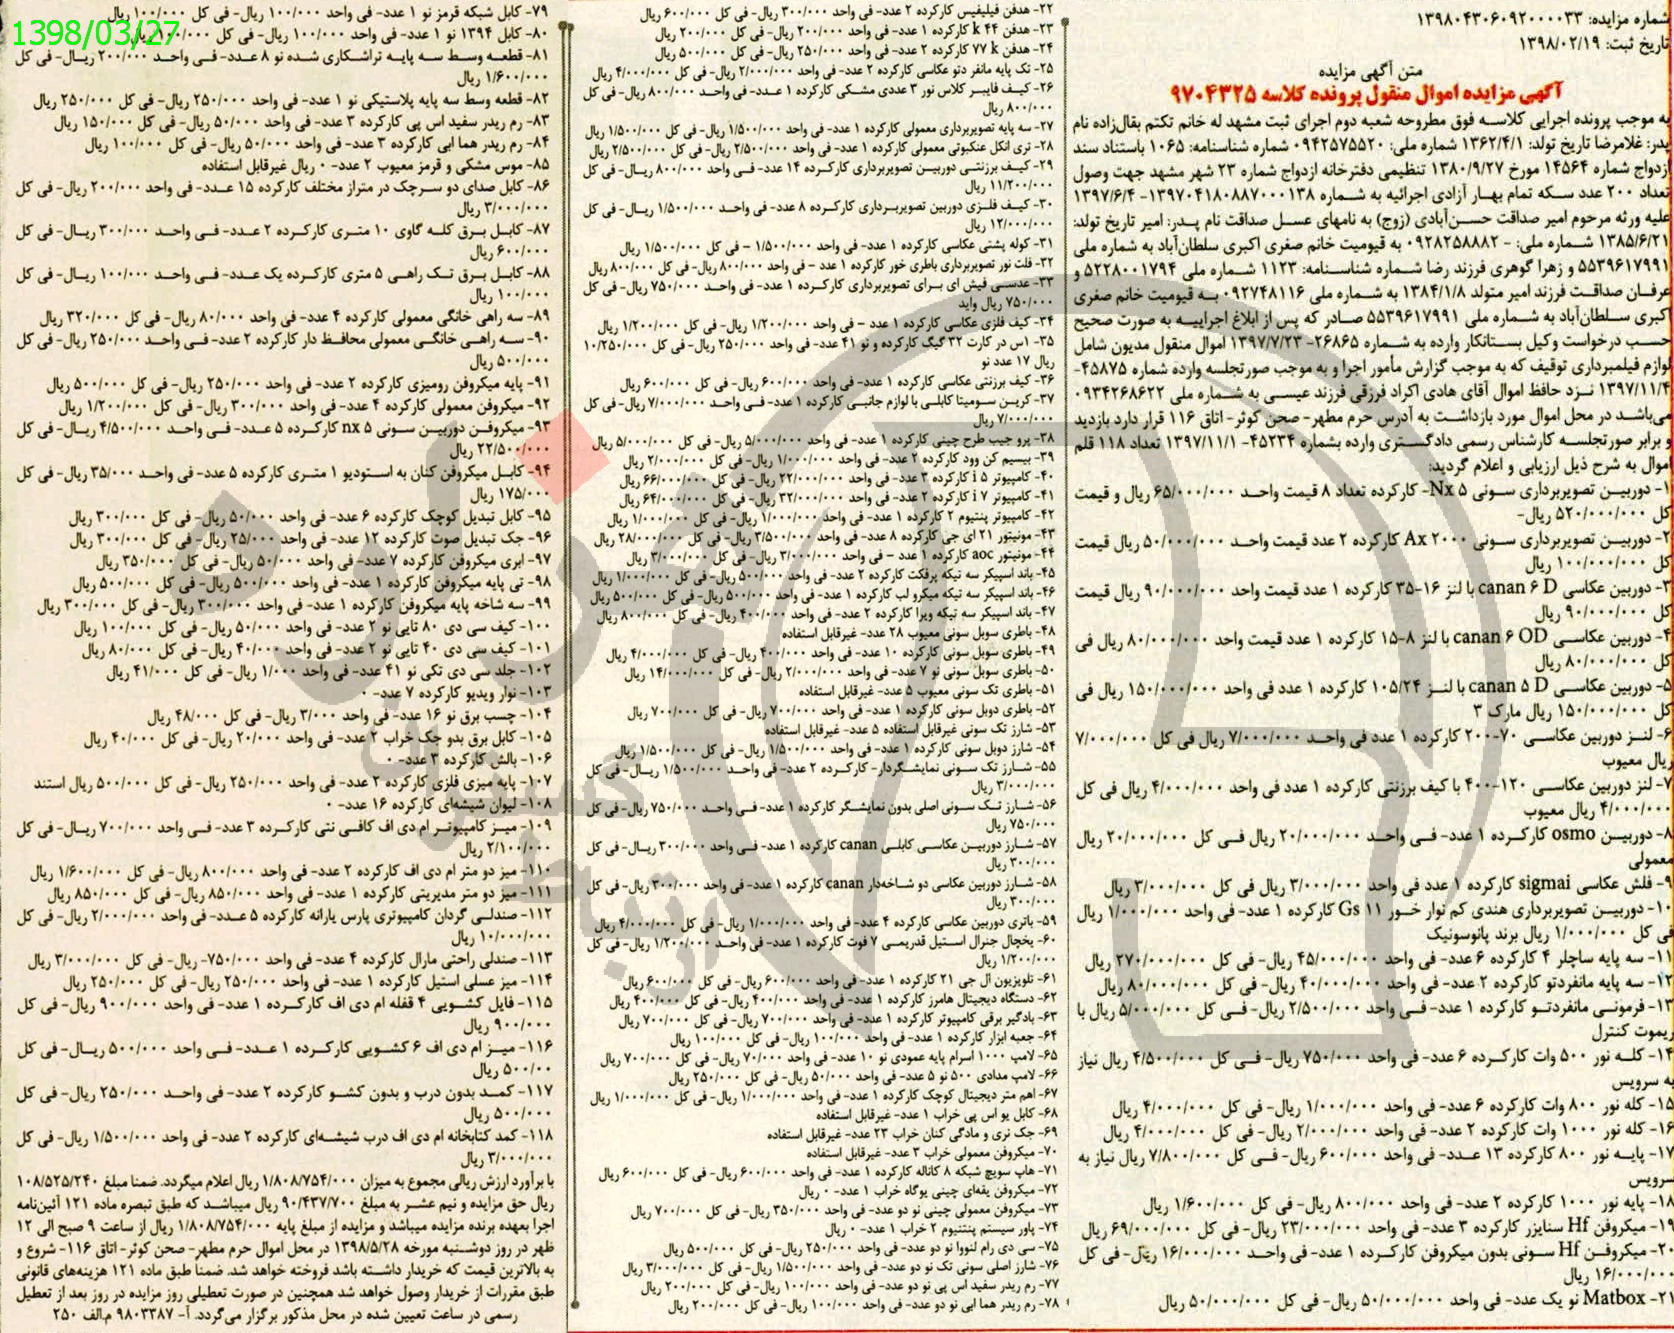 1398/03/27
شماره مزایده: ۱۳۹۸۰۴۳۰۶۰۹۲۰۰۰۰۳۳
تاریخ ثبت: ۱۳۹۸/۰۲/۱۹
متن آگهی مزایده
آگهی مزایده اموال منقول پرونده کلاسه ۹۷۰۴۳۲۵
به موجب پرونده اجرایی کلاسه فوق مطروحه شعبه دوم اجرای ثبت مشهد له خانم تکتم بقال‌زاده نام
پدر: غلامرضا تاریخ تولد: ۱۳۶۲/۴/۱ شماره ملی: ۰۹۴۲۵۷۵۵۲۰ شماره شناسنامه: ۱۰۶۵ باستناد سند
ازدواج شماره ۱۴۵۶۴ مورخ ۱۳۸۰/۹/۲۷ تنظیمی دفترخانه ازدواج شماره ۲۳ شهر مشهد جهت وصول
تعداد ۲۰۰ عدد سکه تمام بهار آزادی اجرائیه به شماره ۱۳۹۷۰۴۱۸۰۸۸۷۰۰۰۱۳۸- ۱۳۹۷/۶/۴
علیه ورثه مرحوم امیر صداقت حسن‌آبادی (زوج) به نامهای عسل صداقت نام پدر: امیر تاریخ تولد:
۱۳۸۵/۶/۲۱ شماره ملی: - ۰۹۲۸۲۵۸۸۸۲ به قیومیت خانم صغری اکبری سلطان‌آباد به شماره ملی
۵۵۳۹۶۱۷۹۹۱ و زهرا گوهری فرزند رضا شماره شناسنامه: ۱۱۲۳ شماره ملی ۵۲۲۸۰۰۱۷۹۴ و
عرفان صداقت فرزند امیر متولد ۱۳۸۴/۱/۸ به شماره ملی ۰۹۲۷۴۸۱۱۶ به قیومیت خانم صغری
اکبری سلطان‌آباد به شماره ملی ۵۵۳۹۶۱۷۹۹۱ صادر که پس از ابلاغ اجراییه به صورت صحیح
حسب درخواست وکیل بستانکار وارده به شماره ۲۶۸۶۵- ۱۳۹۷/۷/۲۳ اموال منقول مدیون شامل
لوازم فیلمبرداری توقیف که به موجب گزارش مأمور اجرا و به موجب صورتجلسه وارده شماره ۴۵۸۷۵-
۱۳۹۷/۱۱/۴ نزد حافظ اموال آقای هادی اکراد فرزقی فرزند عیسی به شماره ملی ۰۹۳۴۲۶۸۶۲۲
می‌باشد در محل اموال مورد بازداشت به آدرس حرم مطهر- صحن کوثر- اتاق ۱۱۶ قرار دارد بازدید
و برابر صورتجلسه کارشناس رسمی دادگستری وارده بشماره ۴۵۲۳۴- ۱۳۹۷/۱۱/۱ تعداد ۱۱۸ قلم
اموال به شرح ذیل ارزیابی و اعلام گردید:
۱- دوربین تصویربرداری سونی Nx ۵- کارکرده تعداد ۸ قیمت واحد ۶۵/۰۰۰/۰۰۰ ریال و قیمت
کل ۵۲۰/۰۰۰/۰۰۰ ریال-
۲- دوربین تصویربرداری سونی Ax ۲۰۰۰ کارکرده ۲ عدد قیمت واحد ۵۰/۰۰۰/۰۰۰ ریال قیمت
کل ۱۰۰/۰۰۰/۰۰۰ ریال
۳- دوربین عکاسی canan ۶ D با لنز ۱۶-۳۵ کارکرده ۱ عدد قیمت واحد ۹۰/۰۰۰/۰۰۰ ریال قیمت
کل ۹۰/۰۰۰/۰۰۰ ریال
۴- دوربین عکاسی canan ۶ OD با لنز ۸-۱۵ کارکرده ۱ عدد قیمت واحد ۸۰/۰۰۰/۰۰۰ ریال فی
کل ۸۰/۰۰۰/۰۰۰ ریال
۵- دوربین عکاسی canan ۵ D با لنز ۱۰۵/۲۴ کارکرده ۱ عدد فی واحد ۱۵۰/۰۰۰/۰۰۰ ریال فی
کل ۱۵۰/۰۰۰/۰۰۰ ریال مارک ۳
۶- لنز دوربین عکاسی ۷۰-۲۰۰ کارکرده ۱ عدد فی واحد ۷/۰۰۰/۰۰۰ ریال فی کل ۷/۰۰۰/۰۰۰
ریال معیوب
۷- لنز دوربین عکاسی ۱۲۰-۴۰۰ با کیف برزنتی کارکرده ۱ عدد فی واحد ۴/۰۰۰/۰۰۰ ریال فی کل
۴/۰۰۰/۰۰۰ ریال معیوب
۸- دوربین osmo کارکرده ۱ عدد- فی واحد ۲۰/۰۰۰/۰۰۰ ریال فی کل ۲۰/۰۰۰/۰۰۰ ریال
معمولی
۹- فلش عکاسی sigmai کارکرده ۱ عدد فی واحد ۳/۰۰۰/۰۰۰ ریال فی کل ۳/۰۰۰/۰۰۰ ریال
۱۰- دوربین تصویربرداری هندی کم نوار خور Gs ۱۱ کارکرده ۱ عدد- فی واحد ۱/۰۰۰/۰۰۰ ریال
فی کل ۱/۰۰۰/۰۰۰ ریال برند پانوسونیک
۱۱- سه پایه ساچلر ۴ کارکرده ۶ عدد- فی واحد ۴۵/۰۰۰/۰۰۰ ریال- فی کل ۲۷۰/۰۰۰/۰۰۰ ریال
۱۲- سه پایه مانفردتو کارکرده ۲ عدد- فی واحد ۴۰/۰۰۰/۰۰۰ ریال- فی کل ۸۰/۰۰۰/۰۰۰ ریال
۱۳- فرمونی مانفردتو کارکرده ۱ عدد- فی واحد ۲/۵۰۰/۰۰۰ ریال- فی کل ۵/۰۰۰/۰۰۰ ریال با
ریموت کنترل
۱۴- کله نور ۵۰۰ وات کارکرده ۶ عدد- فی واحد ۷۵۰/۰۰۰ ریال- فی کل ۴/۵۰۰/۰۰۰ ریال نیاز
به سرویس
۱۵- کله نور ۸۰۰ وات کارکرده ۶ عدد- فی واحد ۱/۰۰۰/۰۰۰ ریال- فی کل ۴/۰۰۰/۰۰۰ ریال
۱۶- کله نور ۱۰۰۰ وات کارکرده ۲ عدد- فی واحد ۲/۰۰۰/۰۰۰ ریال- فی کل ۴/۰۰۰/۰۰۰ ریال
۱۷- پایه نور ۸۰۰ کارکرده ۱۳ عدد- فی واحد ۶۰۰/۰۰۰ ریال- فی کل ۷/۸۰۰/۰۰۰ ریال نیاز به
سرویس
۱۸- پایه نور ۱۰۰۰ کارکرده ۲ عدد- فی واحد ۸۰۰/۰۰۰ ریال- فی کل ۱/۶۰۰/۰۰۰ ریال
۱۹- میکروفن Hf سنایزر کارکرده ۳ عدد- فی واحد ۲۳/۰۰۰/۰۰۰ ریال- فی کل ۶۹/۰۰۰/۰۰۰ ریال
۲۰- میکروفن Hf سونی بدون میکروفن کارکرده ۱ عدد- فی واحد ۱۶/۰۰۰/۰۰۰ ریال- فی کل
۱۶/۰۰۰/۰۰۰ ریال
۲۱- Matbox نو یک عدد- فی واحد ۵۰/۰۰۰/۰۰۰ ریال- فی کل ۵۰/۰۰۰/۰۰۰ ریال
۲۲- هدفن فیلیفیس کارکرده ۲ عدد- فی واحد ۳۰۰/۰۰۰ ریال- فی کل ۶۰۰/۰۰۰ ریال
۲۳- هدفن k ۴۴ کارکرده ۱ عدد- فی واحد ۲۰۰/۰۰۰ ریال- فی کل ۲۰۰/۰۰۰ ریال
۲۴- هدفن k ۷۷ کارکرده ۲ عدد- فی واحد ۲۵۰/۰۰۰ ریال- فی کل ۵۰۰/۰۰۰ ریال
۲۵- تک پایه مانفر دتو عکاسی کارکرده ۲ عدد- فی واحد ۲/۰۰۰/۰۰۰ ریال- فی کل ۴/۰۰۰/۰۰۰ ریال
۲۶- کیف فایبر کلاس نور ۳ عددی مشکی کارکرده ۱ عدد- فی واحد ۸۰۰/۰۰۰ ریال- فی کل
۸۰۰/۰۰۰ ریال
۲۷- سه پایه تصویربرداری معمولی کارکرده ۱ عدد- فی واحد ۱/۵۰۰/۰۰۰ ریال- فی کل ۱/۵۰۰/۰۰۰ ریال
۲۸- تری انکل عنکبوتی معمولی کارکرده ۱ عدد- فی واحد ۲/۵۰۰/۰۰۰ ریال- فی کل ۲/۵۰۰/۰۰۰ ریال
۲۹- کیف برزنتی دوربین تصویربرداری کارکرده ۱۴ عدد- فی واحد ۸۰۰/۰۰۰ ریال- فی کل
۱۱/۲۰۰/۰۰۰ ریال
۳۰- کیف فلزی دوربین تصویربرداری کارکرده ۸ عدد- فی واحد ۱/۵۰۰/۰۰۰ ریال- فی کل
۱۲/۰۰۰/۰۰۰ ریال
۳۱- کوله پشتی عکاسی کارکرده ۱ عدد- فی واحد ۱/۵۰۰/۰۰۰ - فی کل ۱/۵۰۰/۰۰۰ ریال
۳۲- فلت نور تصویربرداری باطری خور کارکرده ۱ عدد - فی واحد ۸۰۰/۰۰۰ ریال- فی کل ۸۰۰/۰۰۰ ریال
۳۳- عدسی فیش ای برای تصویربرداری کارکرده ۱ عدد- فی واحد ۷۵۰/۰۰۰ ریال- فی کل
۷۵۰/۰۰۰ ریال واید
۳۴- کیف فلزی عکاسی کارکرده ۱ عدد - فی واحد ۱/۲۰۰/۰۰۰ ریال- فی کل ۱/۲۰۰/۰۰۰ ریال
۳۵- اس در کارت ۳۲ گیگ کارکرده و نو ۴۱ عدد- فی واحد ۲۵۰/۰۰۰ ریال- فی کل ۱۰/۲۵۰/۰۰۰
ریال ۱۷ عدد نو
۳۶- کیف برزنتی عکاسی کارکرده ۱ عدد- فی واحد ۶۰۰/۰۰۰ ریال- فی کل ۶۰۰/۰۰۰ ریال
۳۷- کرین سومیتا کابلی با لوازم جانبی کارکرده ۱ عدد- فی واحد ۷/۰۰۰/۰۰۰ ریال- فی کل
۷/۰۰۰/۰۰۰ ریال
۳۸- پرو جیب طرح چینی کارکرده ۱ عدد- فی واحد ۵/۰۰۰/۰۰۰ ریال- فی کل ۵/۰۰۰/۰۰۰ ریال
۳۹- بیسیم کن وود کارکرده ۲ عدد- فی واحد ۱/۰۰۰/۰۰۰ ریال- فی کل ۲/۰۰۰/۰۰۰ ریال
۴۰- کامپیوتر i ۵ کارکرده ۳ عدد- فی واحد ۲۲/۰۰۰/۰۰۰ ریال- فی کل ۶۶/۰۰۰/۰۰۰ ریال
۴۱- کامپیوتر i ۷ کارکرده ۲ عدد- فی واحد ۳۲/۰۰۰/۰۰۰ ریال- فی کل ۶۴/۰۰۰/۰۰۰ ریال
۴۲- کامپیوتر پنتیوم ۲ کارکرده ۱ عدد- فی واحد ۱/۰۰۰/۰۰۰ ریال- فی کل ۱/۰۰۰/۰۰۰ ریال
۴۳- مونیتور ۲۱ ای جی کارکرده ۸ عدد- فی واحد ۳/۵۰۰/۰۰۰ ریال- فی کل ۲۸/۰۰۰/۰۰۰ ریال
۴۴- مونیتور aoc کارکرده ۱ عدد - فی واحد ۳/۰۰۰/۰۰۰ ریال- فی کل ۳/۰۰۰/۰۰۰ ریال
۴۵- باند اسپیکر سه تیکه پرفکت کارکرده ۲ عدد- فی واحد ۵۰۰/۰۰۰ ریال- فی کل ۱/۰۰۰/۰۰۰ ریال
۴۶- باند اسپیکر سه تیکه میکرو لب کارکرده ۱ عدد- فی واحد ۵۰۰/۰۰۰ ریال- فی کل ۵۰۰/۰۰۰ ریال
۴۷- باند اسپیکر سه تیکه ویرا کارکرده ۲ عدد- فی واحد ۴۰۰/۰۰۰ ریال- فی کل ۸۰۰/۰۰۰ ریال
۴۸- باطری سوبل سونی معیوب ۲۸ عدد- غیرقابل استفاده
۴۹- باطری سوبل سونی کارکرده ۱۰ عدد- فی واحد ۴۰۰/۰۰۰ ریال- فی کل ۴/۰۰۰/۰۰۰ ریال
۵۰- باطری سوبل سونی نو ۷ عدد- فی واحد ۲/۰۰۰/۰۰۰ ریال- فی کل ۱۴/۰۰۰/۰۰۰ ریال
۵۱- باطری تک سونی معیوب ۵ عدد- غیرقابل استفاده
۵۲- باطری دوبل سونی کارکرده ۱ عدد- فی واحد ۷۰۰/۰۰۰ ریال- فی کل ۷۰۰/۰۰۰ ریال
۵۳- شارژ تک سونی غیرقابل استفاده ۵ عدد- غیرقابل استفاده
۵۴- شارژ دوبل سونی کارکرده ۱ عدد- فی واحد ۱/۵۰۰/۰۰۰ ریال- فی کل ۱/۵۰۰/۰۰۰ ریال
۵۵- شارژ تک سونی نمایشگردار- کارکرده ۲ عدد- فی واحد ۱/۵۰۰/۰۰۰ ریال- فی کل
۳/۰۰۰/۰۰۰ ریال
۵۶- شارژ تک سونی اصلی بدون نمایشگر کارکرده ۱ عدد- فی واحد ۷۵۰/۰۰۰ ریال- فی کل
۷۵۰/۰۰۰ ریال
۵۷- شارژ دوربین عکاسی کابلی canan کارکرده ۱ عدد- فی واحد ۳۰۰/۰۰۰ ریال- فی کل
۳۰۰/۰۰۰ ریال
۵۸- شارژ دوربین عکاسی دو شاخه‌دار canan کارکرده ۱ عدد- فی واحد ۳۰۰/۰۰۰ ریال- فی کل
۳۰۰/۰۰۰ ریال
۵۹- باتری دوربین عکاسی کارکرده ۴ عدد- فی واحد ۱/۰۰۰/۰۰۰ ریال- فی کل ۴/۰۰۰/۰۰۰ ریال
۶۰- یخچال جنرال استیل قدریمی ۷ فوت کارکرده ۱ عدد- فی واحد ۱/۲۰۰/۰۰۰ ریال- فی کل
۱/۲۰۰/۰۰۰ ریال
۶۱- تلویزیون ال جی ۲۱ کارکرده ۱ عدد- فی واحد ۶۰۰/۰۰۰ ریال- فی کل ۶۰۰/۰۰۰ ریال
۶۲- دستگاه دیجیتال هامرز کارکرده ۱ عدد- فی واحد ۴۰۰/۰۰۰ ریال- فی کل ۴۰۰/۰۰۰ ریال
۶۳- بادگیر برقی کامپیوتر کارکرده ۱ عدد- فی واحد ۷۰۰/۰۰۰ ریال- فی کل ۷۰۰/۰۰۰ ریال
۶۴- جعبه ابزار کارکرده ۱ عدد- فی واحد ۱۰۰/۰۰۰ ریال- فی کل ۱۰۰/۰۰۰ ریال
۶۵- لامپ ۱۰۰۰ اسرام پایه عمودی نو ۱۰ عدد- فی واحد ۷۰/۰۰۰ ریال- فی کل ۷۰۰/۰۰۰ ریال
۶۶- لامپ مدادی ۵۰۰ نو ۵ عدد- فی واحد ۵۰/۰۰۰ ریال- فی کل ۲۵۰/۰۰۰ ریال
۶۷- اهم متر دیجیتال کوچک کارکرده ۱ عدد- فی واحد ۱/۰۰۰/۰۰۰ ریال- فی کل ۱/۰۰۰/۰۰۰ ریال
۶۸- کابل یو اس پی خراب ۱ عدد- غیرقابل استفاده
۶۹- جک نری و مادگی کنان خراب ۲۳ عدد- غیرقابل استفاده
۷۰- میکروفن معمولی خراب ۳ عدد- غیرقابل استفاده
۷۱- هاب سویچ شبکه ۸ کاناله کارکرده ۱ عدد- فی واحد ۶۰۰/۰۰۰ ریال- فی کل ۶۰۰/۰۰۰ ریال
۷۲- میکروفن یقه‌ای چینی یوگاه خراب ۱ عدد- ۰ ریال
۷۳- میکروفن معمولی چینی نو دو عدد- فی واحد ۳۵۰/۰۰۰ ریال- فی کل ۷۰۰/۰۰۰ ریال
۷۴- پاور سیستم پنتنیوم ۲ خراب ۱ عدد- ۰ ریال
۷۵- سی دی رام لنووا نو دو عدد- فی واحد ۲۵۰/۰۰۰ ریال- فی کل ۵۰۰/۰۰۰ ریال
۷۶- شارژ اصلی سونی تک نو دو عدد- فی واحد ۱/۵۰۰/۰۰۰ ریال- فی کل ۳/۰۰۰/۰۰۰ ریال
۷۷- رم ریدر سفید اس پی نو دو عدد- فی واحد ۱۰۰/۰۰۰ ریال- فی کل ۲۰۰/۰۰۰ ریال
۷۸- رم ریدر هما ابی نو دو عدد- فی واحد ۱۰۰/۰۰۰ ریال- فی کل ۲۰۰/۰۰۰ ریال
۷۹- کابل شبکه قرمز نو ۱ عدد- فی واحد ۱۰۰/۰۰۰ ریال- فی کل ۱۰۰/۰۰۰ ریال
۸۰- کابل ۱۳۹۴ نو ۱ عدد- فی واحد ۱۰۰/۰۰۰ ریال- فی کل ۱۰۰/۰۰۰ ریال
۸۱- قطعه وسط سه پایه تراشکاری شده نو ۸ عدد- فی واحد ۲۰۰/۰۰۰ ریال- فی کل
۱/۶۰۰/۰۰۰ ریال
۸۲- قطعه وسط سه پایه پلاستیکی نو ۱ عدد- فی واحد ۲۵۰/۰۰۰ ریال- فی کل ۲۵۰/۰۰۰ ریال
۸۳- رم ریدر سفید اس پی کارکرده ۳ عدد- فی واحد ۵۰/۰۰۰ ریال- فی کل ۱۵۰/۰۰۰ ریال
۸۴- رم ریدر هما ابی کارکرده ۳ عدد- فی واحد ۵۰/۰۰۰ ریال- فی کل ۱۰۰/۰۰۰ ریال
۸۵- موس مشکی و قرمز معیوب ۲ عدد- ۰ ریال غیرقابل استفاده
۸۶- کابل صدای دو سرجک در متراژ مختلف کارکرده ۱۵ عدد- فی واحد ۲۰۰/۰۰۰ ریال- فی کل
۳/۰۰۰/۰۰۰ ریال
۸۷- کابل برق کله گاوی ۱۰ متری کارکرده ۲ عدد- فی واحد ۳۰۰/۰۰۰ ریال- فی کل
۶۰۰/۰۰۰ ریال
۸۸- کابل برق تک راهی ۵ متری کارکرده یک عدد- فی واحد ۱۰۰/۰۰۰ ریال- فی کل
۱۰۰/۰۰۰ ریال
۸۹- سه راهی خانگی معمولی کارکرده ۴ عدد- فی واحد ۸۰/۰۰۰ ریال- فی کل ۳۲۰/۰۰۰ ریال
۹۰- سه راهی خانگی معمولی محافظ دار کارکرده ۲ عدد- فی واحد ۲۵۰/۰۰۰ ریال- فی کل
۵۰۰/۰۰۰ ریال
۹۱- پایه میکروفن رومیزی کارکرده ۲ عدد- فی واحد ۲۵۰/۰۰۰ ریال- فی کل ۵۰۰/۰۰۰ ریال
۹۲- میکروفن معمولی کارکرده ۴ عدد- فی واحد ۳۰۰/۰۰۰ ریال- فی کل ۱/۲۰۰/۰۰۰ ریال
۹۳- میکروفن دوربین سونی nx ۵ کارکرده ۵ عدد- فی واحد ۴/۵۰۰/۰۰۰ ریال- فی کل
۲۲/۵۰۰/۰۰۰ ریال
۹۴- کابل میکروفن کنان به استودیو ۱ متری کارکرده ۵ عدد- فی واحد ۳۵/۰۰۰ ریال- فی کل
۱۷۵/۰۰۰ ریال
۹۵- کابل تبدیل کوچک کارکرده ۶ عدد- فی واحد ۵۰/۰۰۰ ریال- فی کل ۳۰۰/۰۰۰ ریال
۹۶- جک تبدیل صوت کارکرده ۱۲ عدد- فی واحد ۲۵/۰۰۰ ریال- فی کل ۳۰۰/۰۰۰ ریال
۹۷- ابری میکروفن کارکرده ۷ عدد- فی واحد ۵۰/۰۰۰ ریال- فی کل ۳۵۰/۰۰۰ ریال
۹۸- تی پایه میکروفن کارکرده ۱ عدد- فی واحد ۵۰۰/۰۰۰ ریال- فی کل ۵۰۰/۰۰۰ ریال
۹۹- سه شاخه پایه میکروفن کارکرده ۱ عدد- فی واحد ۳۰۰/۰۰۰ ریال- فی کل ۳۰۰/۰۰۰ ریال
۱۰۰- کیف سی دی ۸۰ تایی نو ۲ عدد- فی واحد ۵۰/۰۰۰ ریال- فی کل ۱۰۰/۰۰۰ ریال
۱۰۱- کیف سی دی ۴۰ تایی نو ۲ عدد- فی واحد ۴۰/۰۰۰ ریال- فی کل ۸۰/۰۰۰ ریال
۱۰۲- جلد سی دی تکی نو ۴۱ عدد- فی واحد ۱/۰۰۰ ریال- فی کل ۴۱/۰۰۰ ریال
۱۰۳- نوار ویدیو کارکرده ۷ عدد- ۰
۱۰۴- چسب برق نو ۱۶ عدد- فی واحد ۳/۰۰۰ ریال- فی کل ۴۸/۰۰۰ ریال
۱۰۵- کابل برق بدو جک خراب ۲ عدد- فی واحد ۲۰/۰۰۰ ریال- فی کل ۴۰/۰۰۰ ریال
۱۰۶- بالش کارکرده ۳ عدد- ۰
۱۰۷- پایه میزی فلزی کارکرده ۲ عدد- فی واحد ۲۵۰/۰۰۰ ریال- فی کل ۵۰۰/۰۰۰ ریال استند
۱۰۸- لیوان شیشه‌ای کارکرده ۱۶ عدد- ۰
۱۰۹- میز کامپیوتر ام دی اف کافی نتی کارکرده ۳ عدد- فی واحد ۷۰۰/۰۰۰ ریال- فی کل
۲/۱۰۰/۰۰۰ ریال
۱۱۰- میز دو متر ام دی اف کارکرده ۲ عدد- فی واحد ۸۰۰/۰۰۰ ریال- فی کل ۱/۶۰۰/۰۰۰ ریال
۱۱۱- میز دو متر مدیریتی کارکرده ۱ عدد- فی واحد ۸۵۰/۰۰۰ ریال- فی کل ۸۵۰/۰۰۰ ریال
۱۱۲- صندلی گردان کامپیوتری پارس یارانه کارکرده ۵ عدد- فی واحد ۲/۰۰۰/۰۰۰ ریال- فی کل
۱۰/۰۰۰/۰۰۰ ریال
۱۱۳- صندلی راحتی مارال کارکرده ۴ عدد- فی واحد ۷۵۰/۰۰۰- ریال- فی کل ۳/۰۰۰/۰۰۰ ریال
۱۱۴- میز عسلی استیل کارکرده ۱ عدد- فی واحد ۲۵۰/۰۰۰ ریال- فی کل ۲۵۰/۰۰۰ ریال
۱۱۵- فایل کشویی ۴ قفله ام دی اف کارکرده ۱ عدد- فی واحد ۹۰۰/۰۰۰ ریال- فی کل
۹۰۰/۰۰۰ ریال
۱۱۶- میز ام دی اف ۶ کشویی کارکرده ۱ عدد- فی واحد ۵۰۰/۰۰۰ ریال- فی کل
۵۰۰/۰۰ ریال
۱۱۷- کمد بدون درب و بدون کشو کارکرده ۲ عدد- فی واحد ۲۵۰/۰۰۰ ریال- فی کل
۵۰۰/۰۰۰ ریال
۱۱۸- کمد کتابخانه ام دی اف درب شیشه‌ای کارکرده ۲ عدد- فی واحد ۱/۵۰۰/۰۰۰ ریال- فی کل
۳/۰۰۰/۰۰۰ ریال
با برآورد ارزش ریالی مجموع به میزان ۱/۸۰۸/۷۵۴/۰۰۰ ریال اعلام میگردد. ضمنا مبلغ ۱۰۸/۵۲۵/۲۴۰
ریال حق مزایده و نیم عشر به مبلغ ۹۰/۴۳۷/۷۰۰ ریال میباشد که طبق تبصره ماده ۱۲۱ آئین‌نامه
اجرا بعهده برنده مزایده میباشد و مزایده از مبلغ پایه ۱/۸۰۸/۷۵۴/۰۰۰ ریال از ساعت ۹ صبح الی ۱۲
ظهر در روز دوشنبه مورخه ۱۳۹۸/۵/۲۸ در محل اموال حرم مطهر- صحن کوثر- اتاق ۱۱۶- شروع و
به بالاترین قیمت که خریدار داشته باشد فروخته خواهد شد. ضمنا طبق ماده ۱۲۱ هزینه‌های قانونی
طبق مقررات از خریدار وصول خواهد شد همچنین در صورت تعطیلی روز مزایده در روز بعد از تعطیل
رسمی در ساعت تعیین شده در محل مذکور برگزار می‌گردد. آ- ۹۸۰۳۳۸۷ م‌الف ۲۵۰